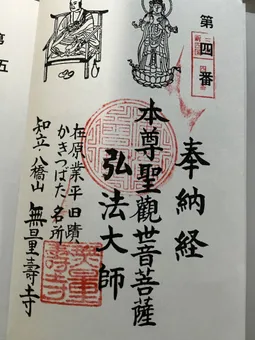 第四番
奉納経
本尊聖觀世音菩薩
弘法大師
在原業平旧蹟
かきつばた名所
知立八橋山
無量壽寺
無量
壽寺
第五